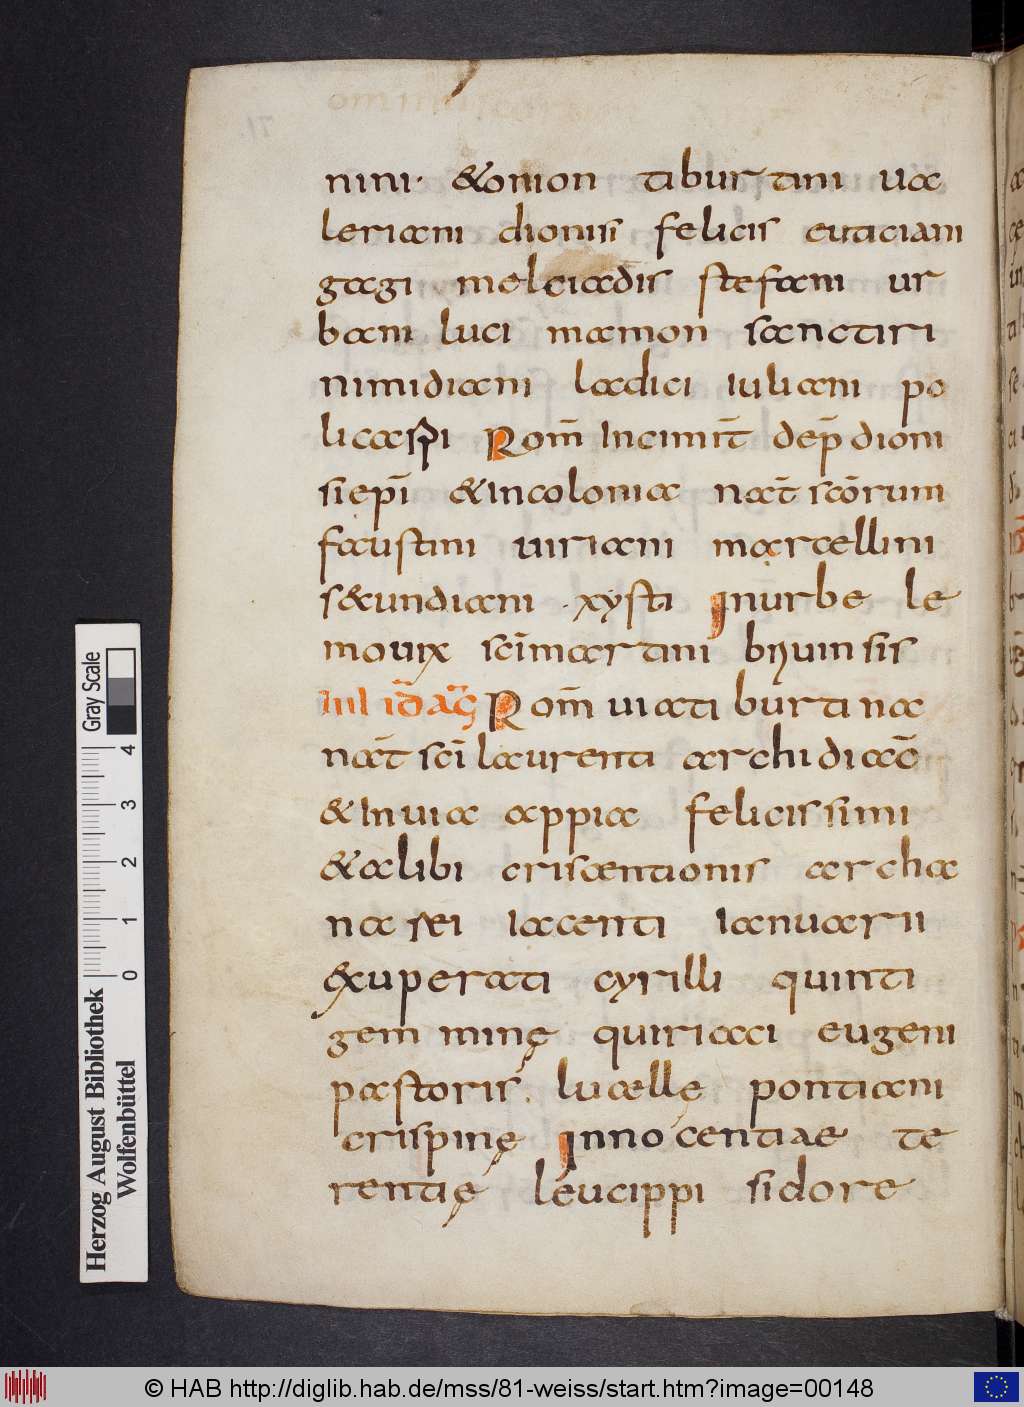 nini· &onion tiburtini ua
leriani dionisi felicis euticiani
gagi melciadis stefani ur
bani luci mamon sanctiri
nimidiani ladici iuliani po
licarpi Rom̄ Incimit̄ dep̄ dioni
siepī &Incolonia nat̄ scōrum
faustini uiriani marcellini
s&undiani ·xysti Inurbe le
mouix scīmartini bryuinsis
IIII id̄ aḡ Rom̄ uiati burtina
nat̄ scī laurenti archidiac̄
&Inuia appia felicissimi
&alibi crisaentionis archa
na sei Iacenti Ianuarii
&xuperati cyrilli quinti
gem minę quiriaci eugeni
pastoris. lucellę pontiani
crispinę Innocentiae te
rentię leucippi sidore
Herzog August Bibliothek
Wolfenbüttel
0 1 2 3 4
Gray Scale
© HAB http://diglib.hab.de/mss/81-weiss/start.htm?image=00148